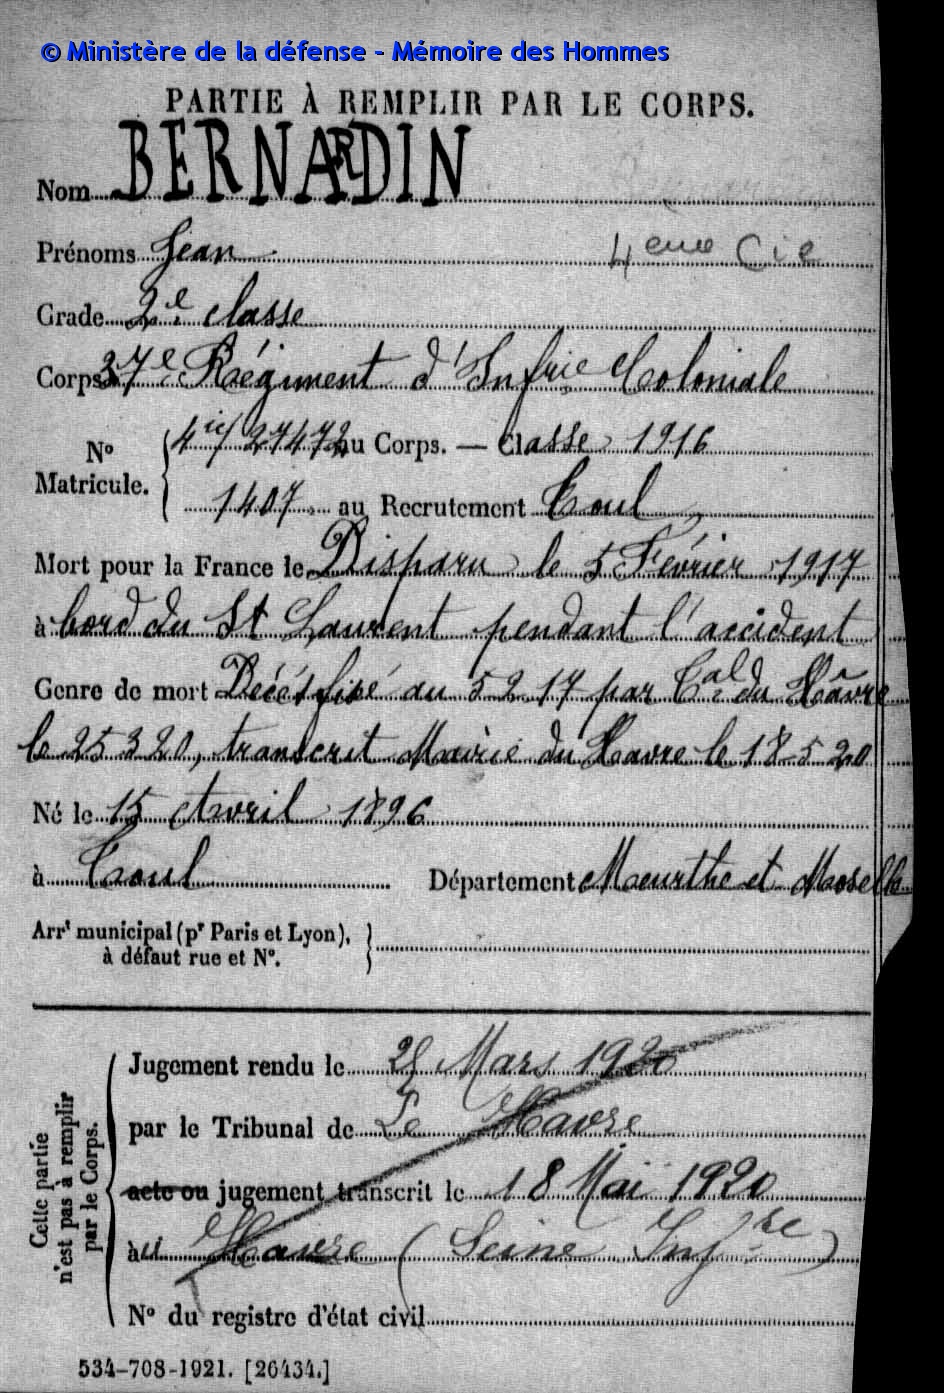 © Ministère de la défense - Mémoire des Hommes
PARTIE À REMPLIR PAR LE CORPS.
Nom BERNARDIN
Prénoms Jean 4ème Cie
Grade 2e classe
Corps 37e Régiment d'Infrie Coloniale
No Matricule. 4ic/27472 au Corps. — Classe 1916
1407 au Recrutement Toul
Mort pour la France le Disparu le 5 Février 1917
à bord du St Laurent pendant l'accident
Genre de mort Décés fixé au 5 2 17 par Cal du Hâvre
le 25 3 20, transcrit Mairie du Havre le 18 5 20
Né le 15 Avril 1896
à Toul Département Meurthe et Moselle
Arrt municipal (pr Paris et Lyon),
à défaut rue et No.
Cette partie
n'est pas à remplir
par le Corps.
Jugement rendu le 25 Mars 1920
par le Tribunal de Le Havre
acte ou jugement transcrit le 18 Mai 1920
au Havre (Seine Infre)
No du registre d'état civil
534-708-1921. [26434.]